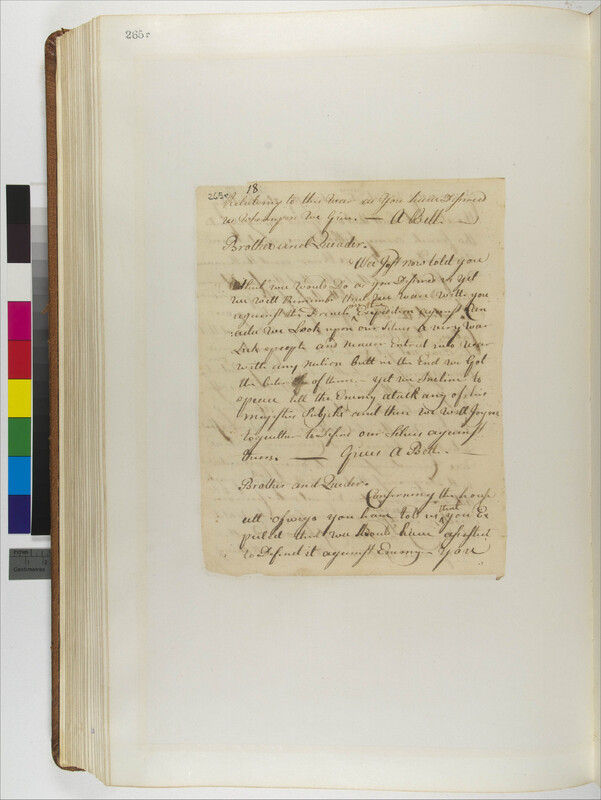 265r
265r
18
Relateing to this war as You have Desired
whereupon we Give. — A Belt. —
Brother and Queder.
Wee Just now told you
that we would Do as you Desired us Yet
we well Remember that we ware with you
against the French on the Expedition against Can
ada we Look upon our Selves a very war
Lick people and Never Entred into war
with any Nation butt in the End we Got
the beter of them — Yet we Incline to
peace till the Enemy atack any of his
Majesties Subjects and then we will Joyn
together to Defend our Selves against
them. — Gives A Belt. —
Brother and Queder.
Conserning the house
att oswego you have told us that you Ex
pected that we should have assisted
to Defend it against Enemy — You